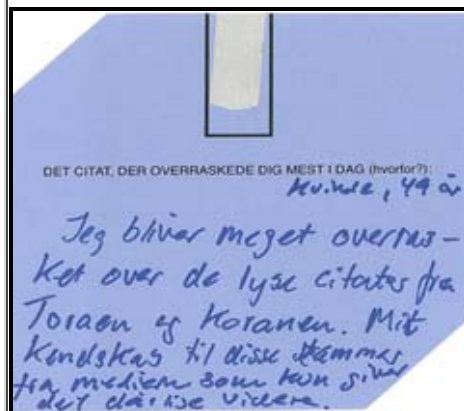 DET CITAT, DER OVERRASKEDE DIG MEST I DAG (hvorfor?):
Kvinde, 49 år
Jeg bliver meget overras-
ket over de lyse citater fra
Toraen og Koranen. Mit
Kendskab til disse stammer
fra medierne som kun giver
det dårlige videre.